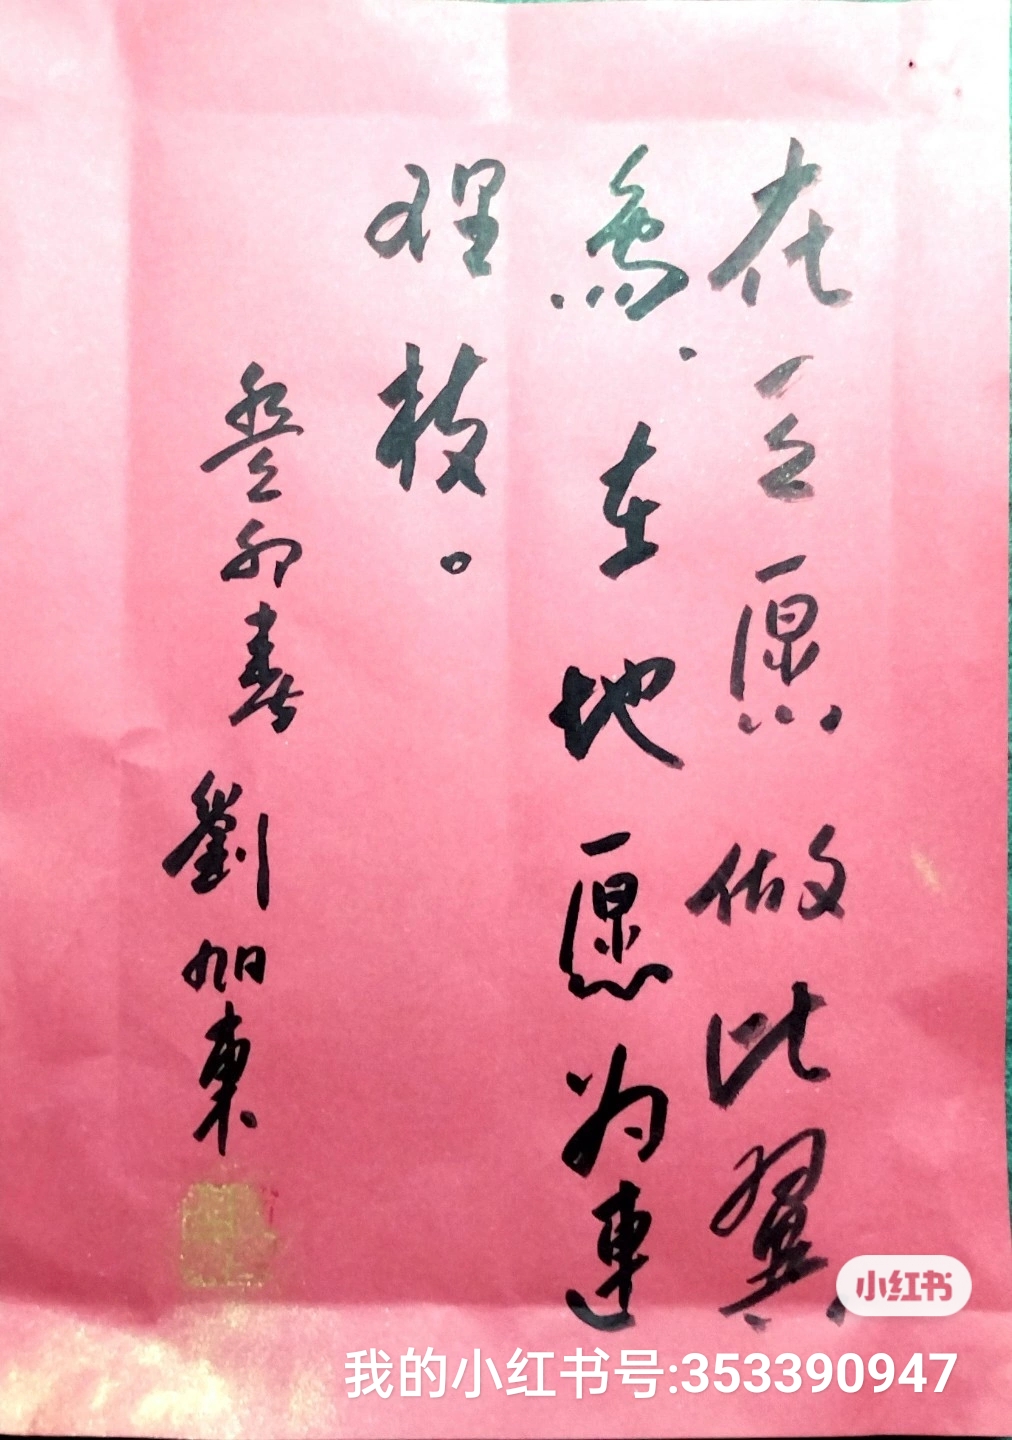 在天愿做比翼
鳥、在地愿为連
理枝。
癸卯春 劉旭東
小红书
我的小红书号:353390947